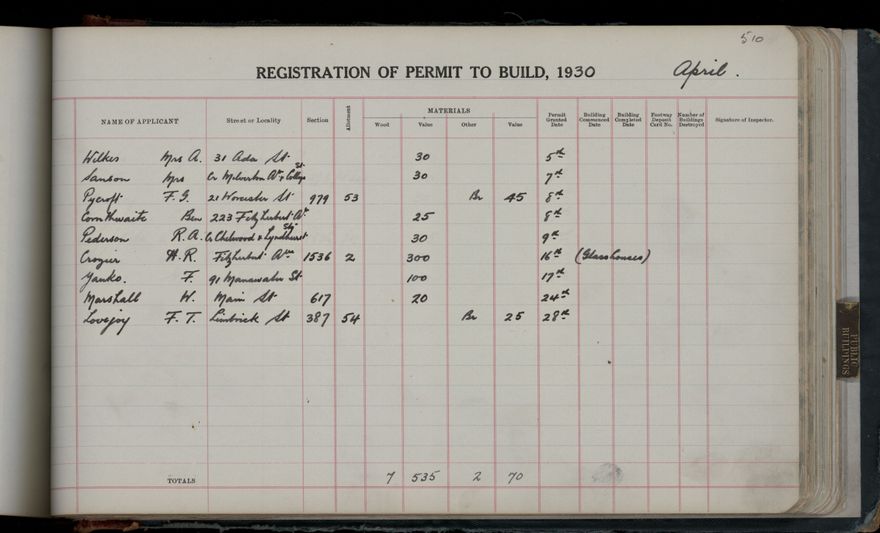 510
REGISTRATION OF PERMIT TO BUILD, 1930 April.
NAME OF APPLICANT Street or Locality Section Allotment MATERIALS Wood Value Other Value Permit Granted Date Building Commenced Date Building Completed Date Footway Deposit Card No. Number of Buildings Destroyed Signature of Inspector.
Wilkes Mrs A. 31 Ada St 30 5th
Sanson Mrs Cr Milverton Av & College St 30 7th
Pycroft F. G. 21 Worcester St 979 53 Br 45 8th
Cornthwaite Ben 223 Fitzherbert Av 25 8th
Pederson R. A. Cr Chelwood & Lyndhurst Sts 30 9th
Crozier H. R. Fitzherbert Ave 1536 2 300 16th (Glasshouses)
Yanko. F. 91 Manawatu St 100 17th
Marshall W. Main St 617 20 24th
Lovejoy F. T. Limbrick St 387 54 Br 25 28th
TOTALS 7 535 2 70
PUBLIC BUILDINGS